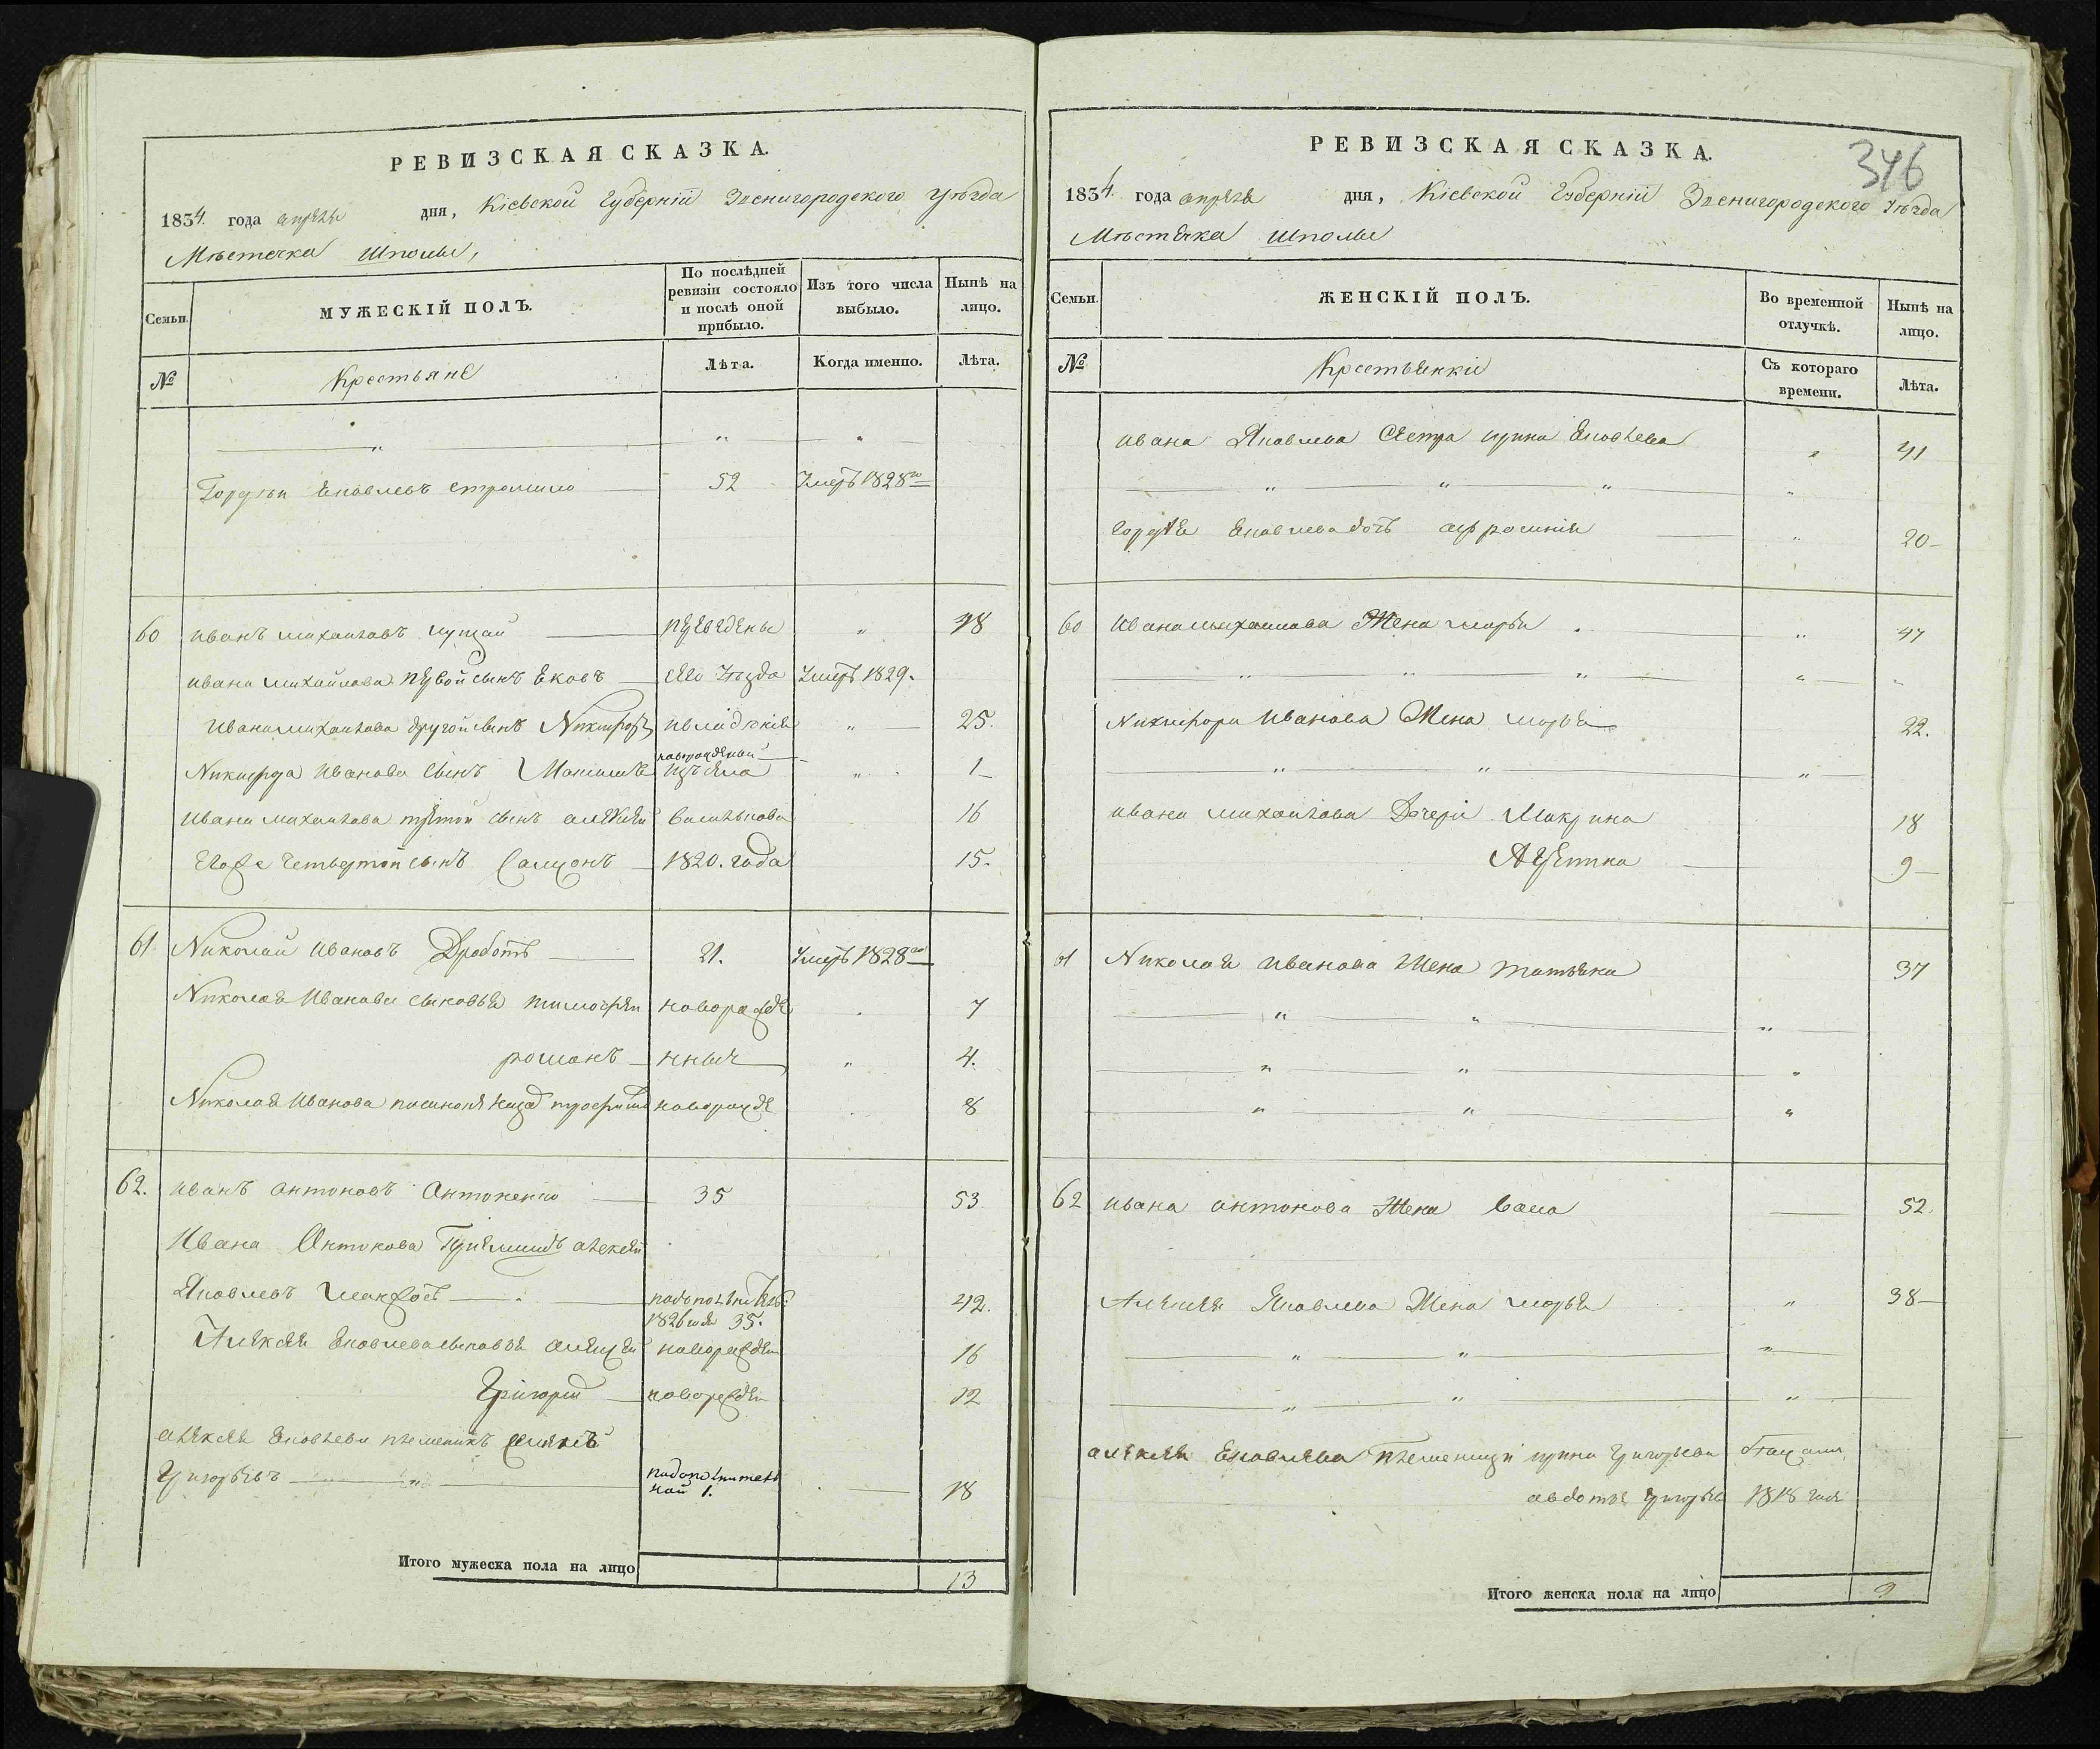 РЕВИЗСКАЯ СКАЗКА.
1834. года апрѣля дня, Кіевской Губерніи Звенигородского Уѣзда
Мѣстечка Шполы,
Семьи.
МУЖЕСКІЙ ПОЛЪ.
По послѣдней ревизіи состояло и послѣ оной прибыло.
Изъ того числа выбыло.
Нынѣ на лицо.
№
Крестьяне
Лѣта.
Когда именно.
Лѣта.
Гордѣй Яковлевъ 52 Умеръ 1828го
60 иванъ михайловъ переведены 48
ивана михайлова первой сынъ Яковъ Умеръ 1829.
Ивана михайлова другой сынъ Никифоръ 25.
Никифора Иванова Сынъ Максимъ новорожденной изъ села 1
Ивана михайлова третой сынъ алексей 16
Его же четвертой сынъ Самсонъ 1820. года 15.
61 Николай Ивановъ Дроботъ 21. Умеръ 1828го
Николая Иванова сыновья тимофей новорожде 7
романъ нные 4.
Николая Иванова новорожде 8
62. иванъ антоновъ Антоненко 35 53
Ивана Антонова алексей
Яковлевъ 1826 года 35. 42.
Алексея Яковлева сыновья новорожден 16
Григорий новорожден 12
алексея Яковлева племеникъ
Григорьевъ подополнительной 1. 18
Итого мужеска пола на лицо 13
РЕВИЗСКАЯ СКАЗКА.
346
1834. года апрѣля дня, Кіевской Губерніи Звенигородского Уѣзда
Мѣстечка Шполы
Семьи.
ЖЕНСКІЙ ПОЛЪ.
Во временной отлучкѣ.
Нынѣ на лицо.
№
Крестьянки
Съ котораго времени.
Лѣта.
ивана Яковлева Сестра ирина Яковлева 41
Гордея Яковлева дочь афросиния 20
60 Ивана михайлова Жена марья 47
Никифора Иванова Жена марья 22.
ивана михайлова Дочери Макрина 18
9
61 Николая иванова Жена татьяна 37
62 ивана антонова Жена 52.
Алексея Яковлева Жена марья 38
алексея Яковлева племеници ирина Григорьева
авдотья Григорьева 1818 года
Итого женска пола на лицо 9